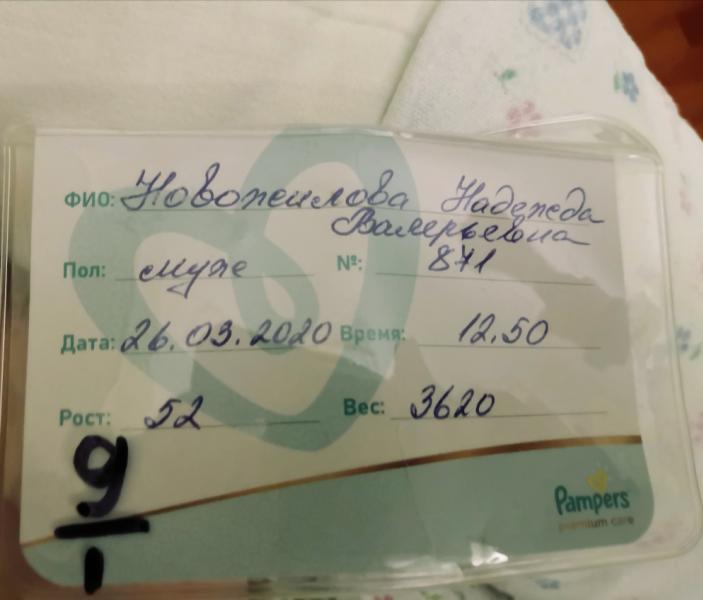 ФИО: Новожилова Надежда
Валерьевна
Пол: муж №: 871
Дата: 26.03.2020 Время: 12.50
Рост: 52 Вес: 3620
9
1
Pampers
premium care